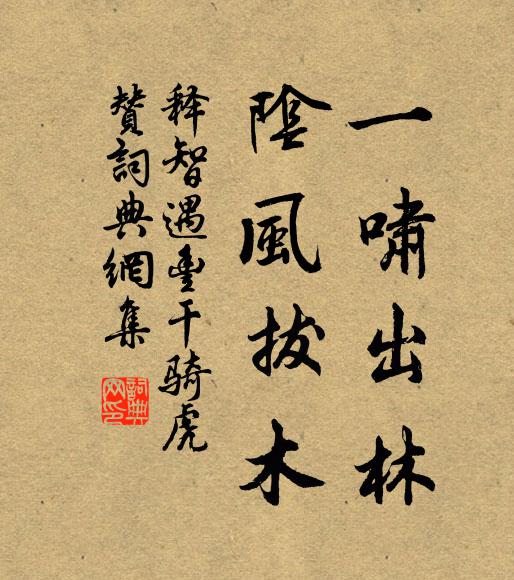 一嘯出林
陰風拔木
釋智遇豐干騎虎
贊詞典網集
詞典
网印